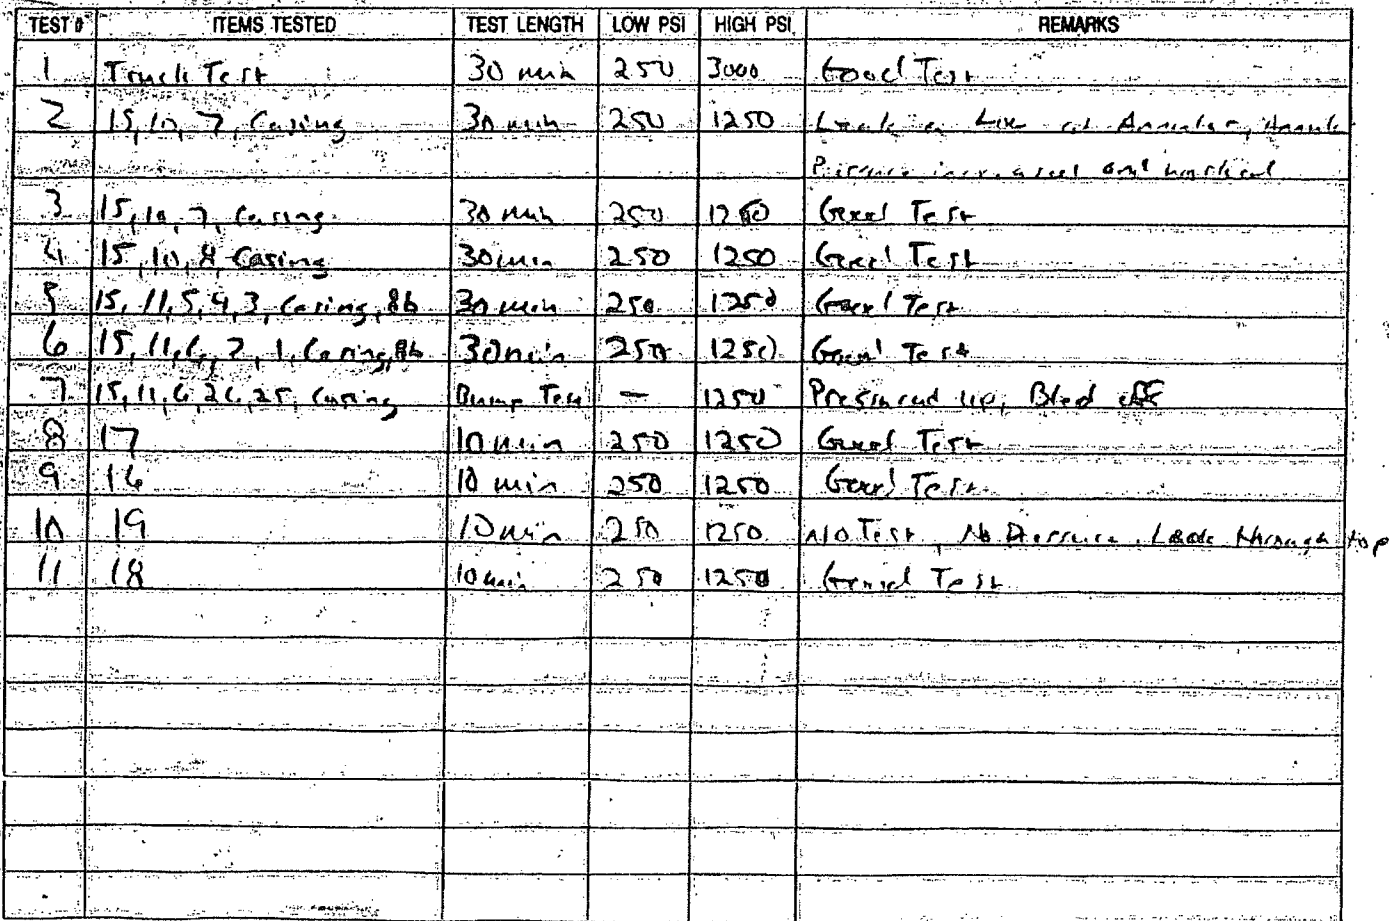 TEST # ITEMS TESTED TEST LENGTH LOW PSI HIGH PSI REMARKS
1 Truck Test 30 min 250 3000 Good Test
2 15, 10, 7, Casing 30 min 250 1250 Leak at Annular,
Pressure increased and
3 15, 10, 7, Casing 30 min 250 1250 Good Test
4 15, 10, 8, Casing 30 min 250 1250 Good Test
5 15, 11, 5, 4, 3, Casing, 8b 30 min 250 1250 Good Test
6 15, 11, 6, 2, 1, Casing, 8b 30 min 250 1250 Good Test
7 15, 11, 6, 26, 25, Casing Bump Test — 1250 Pressured up, Bled off
8 17 10 min 250 1250 Good Test
9 16 10 min 250 1250 Good Test
10 19 10 min 250 1250 No Test, No Pressure, through top
11 18 10 min 250 1250 Good Test